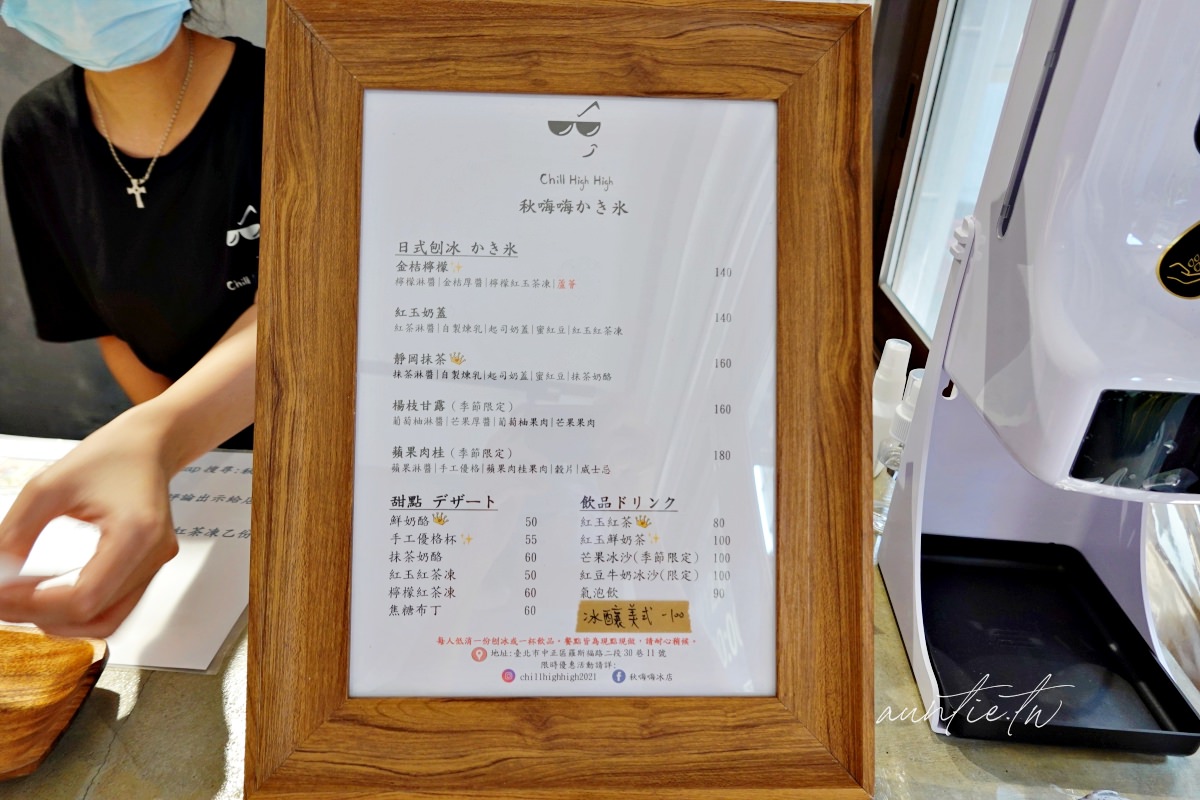 Chill High High
秋嗨嗨かき氷
日式刨冰 かき氷
金桔檸檬 140
檸檬淋醬|金桔厚醬|檸檬紅玉茶凍|蘆薈
紅玉奶蓋 140
紅茶淋醬|自製煉乳|起司奶蓋|蜜紅豆|紅玉紅茶凍
靜岡抹茶 160
抹茶淋醬|自製煉乳|起司奶蓋|蜜紅豆|抹茶奶酪
楊枝甘露(季節限定) 160
葡萄柚淋醬|芒果厚醬|葡萄柚果肉|芒果果肉
蘋果肉桂(季節限定) 180
蘋果淋醬|手工優格|蘋果肉桂果肉|穀片|威士忌
甜點 デザート
鮮奶酪 50
手工優格杯 55
抹茶奶酪 60
紅玉紅茶凍 50
檸檬紅茶凍 60
焦糖布丁 60
飲品ドリンク
紅玉紅茶 80
紅玉鮮奶茶 100
芒果冰沙(季節限定) 100
紅豆牛奶冰沙(限定) 100
氣泡飲 90
冰釀美式 -100
每人低消一份刨冰或一杯飲品。餐點皆為現點現做,請耐心稍候。
地址:臺北市中正區羅斯福路二段30巷11號
限時優惠活動請詳:
chillhighhigh2021 秋嗨嗨冰店
Chill
map 搜尋:秋
評論出示給店
紅茶凍乙份
auntie.tw